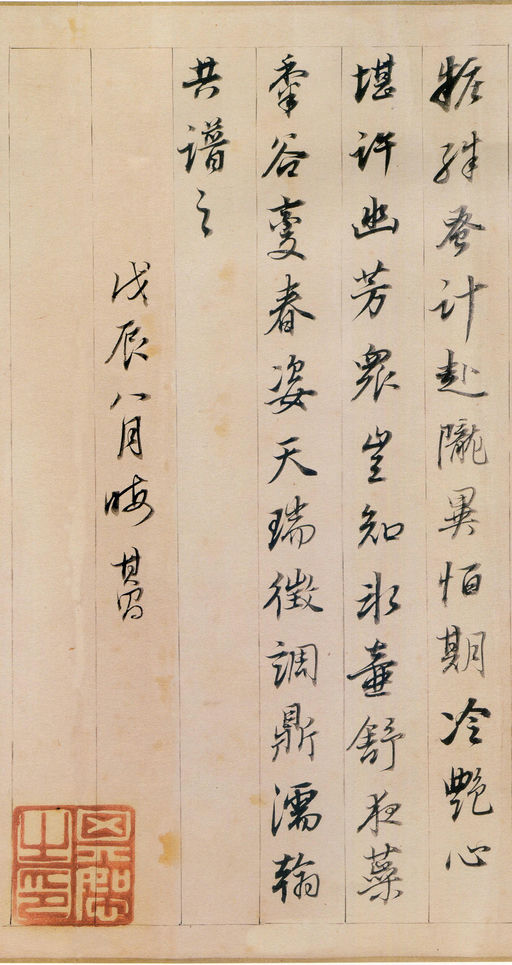 粧殊蚤計赴隴異恒期冷艷心
堪許幽芳衆豈知冰壺舒夜蘂
黍谷變春姿天瑞徵調鼎濡翰
共譜之
戊辰八月晦 其昌